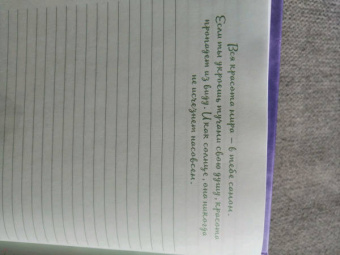 Вся красота мира – в тебе самом.
Если ты укроешь тучами свою душу, красота
пропадет из виду. И как солнце, она никогда
не исчезнет насовсем.